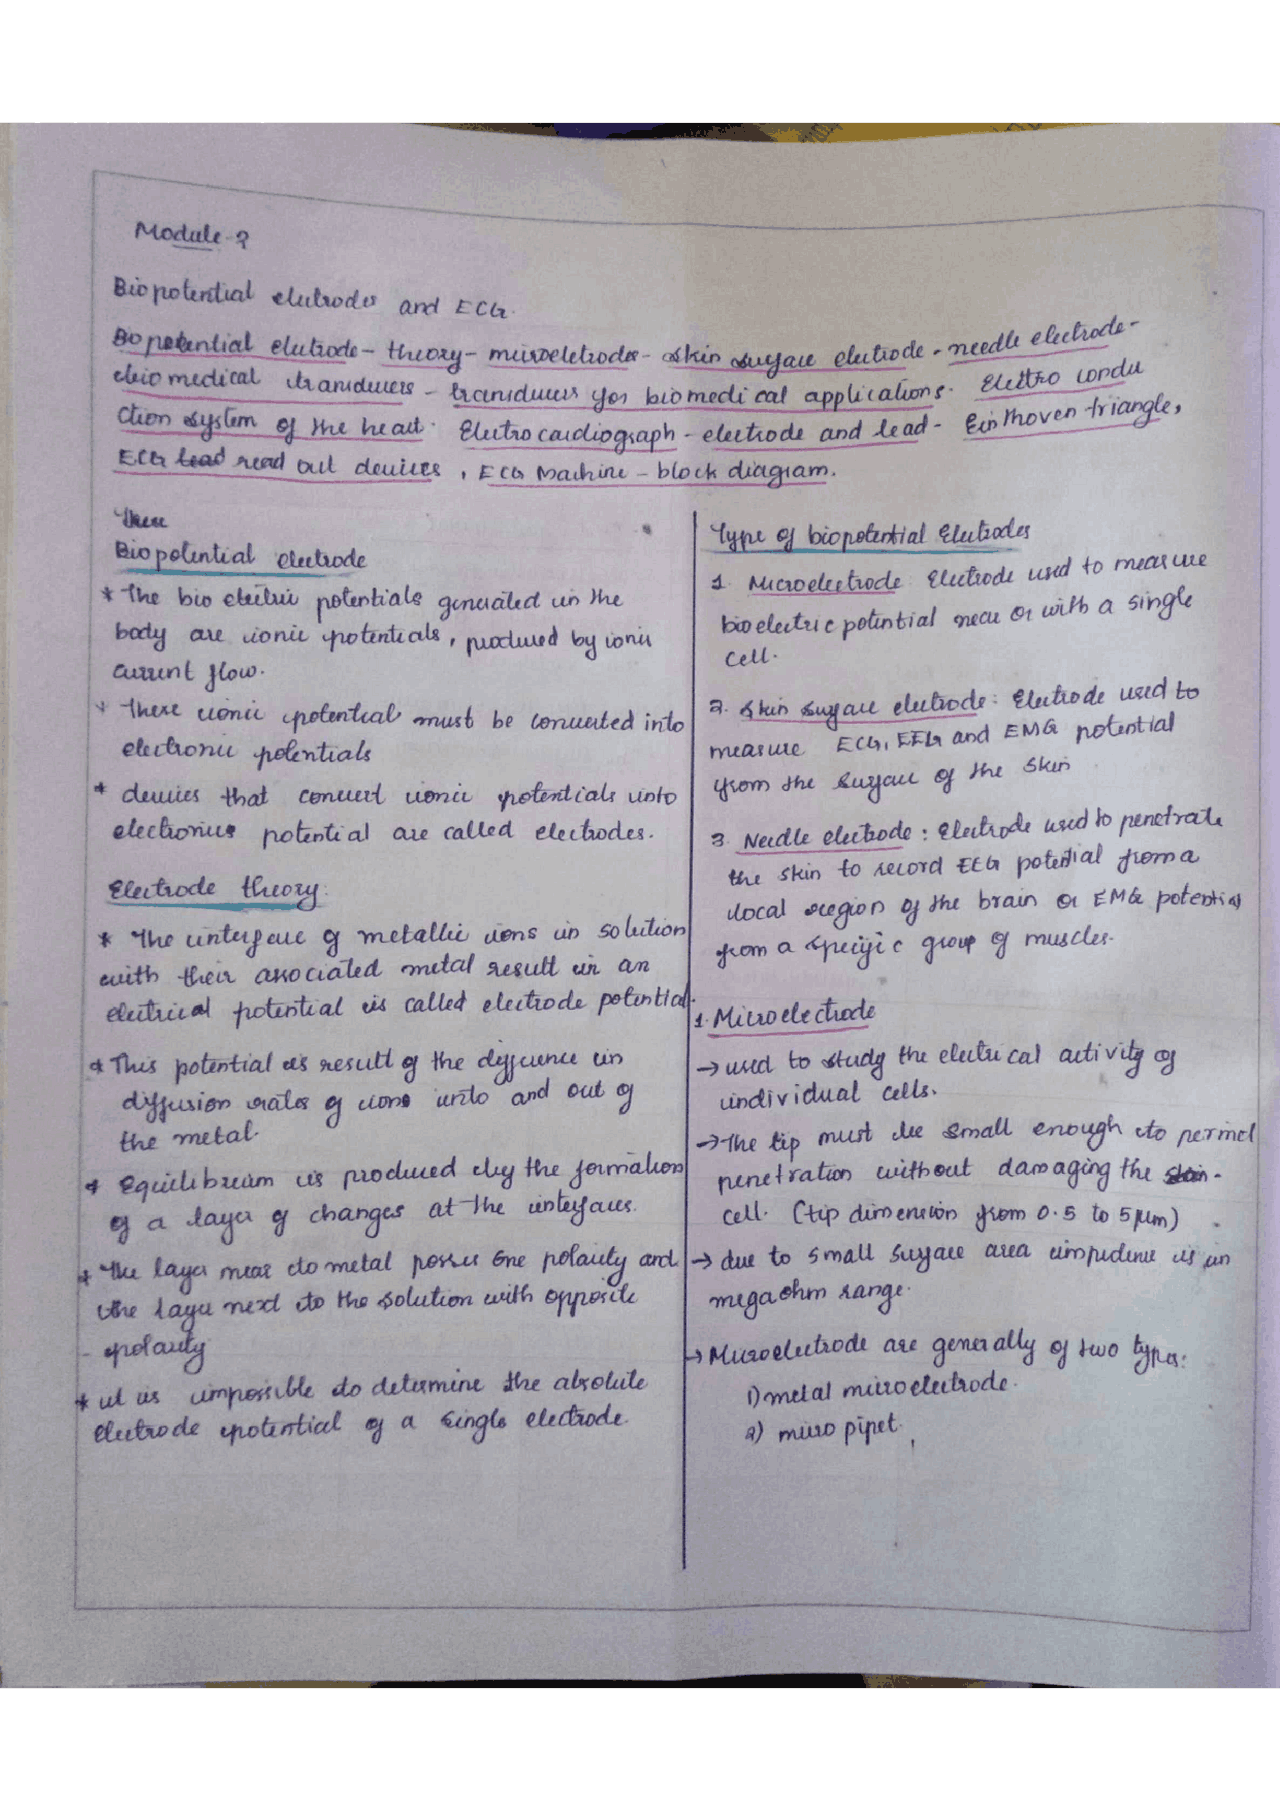 Module-2
Biopotential electrodes and ECG.
Biopotential electrode - theory - microeletrodes - skin surface electrode - needle electrode -
biomedical transducers - transducers for biomedical applications. Electro condu
ction system of the heart. Electrocardiograph - electrode and lead - Einthoven triangle,
ECG lead read out devices, ECG Machine - block diagram.
These
Biopotential electrode
* The bio eletric potentials generated in the
body are ionic potentials, produced by ionic
current flow.
* These ionic potential must be converted into
electronic potentials
* devices that convert ionic potentials into
electronics potential are called electrodes.
Electrode theory:
* The interface of metallic ions in solution
with their associated metal result in an
electrical potential is called electrode potential.
* This potential is result of the difference in
diffusion rates of ions into and out of
the metal.
* Equilibrium is produced by the formation
of a layer of changes at the interfaces.
* The layer near to metal posses one polarity and
the layer next to the solution with opposite
- polarity
* it is impossible to determine the absolute
electrode potential of a single electrode.
Type of biopotential Electrodes
1. Microelectrode: Electrode used to measure
bioelectric potential near or with a single
cell.
2. Skin surface electrode: Electrode used to
measure ECG, EEG and EMG potential
from the surface of the skin
3. Needle electrode: Electrode used to penetrate
the skin to record EEG potential from a
local region of the brain or EMG potential
from a specific group of muscles.
1. Microelectrode
→ used to study the electrical activity of
individual cells.
→ The tip must be small enough to permit
penetration without damaging the skin -
cell. (tip dimension from 0.5 to 5 μm)
→ due to small surface area impedence is in
megaohm range.
→ Microelectrode are generally of two types:
1) metal microelectrode.
2) micro pipet.